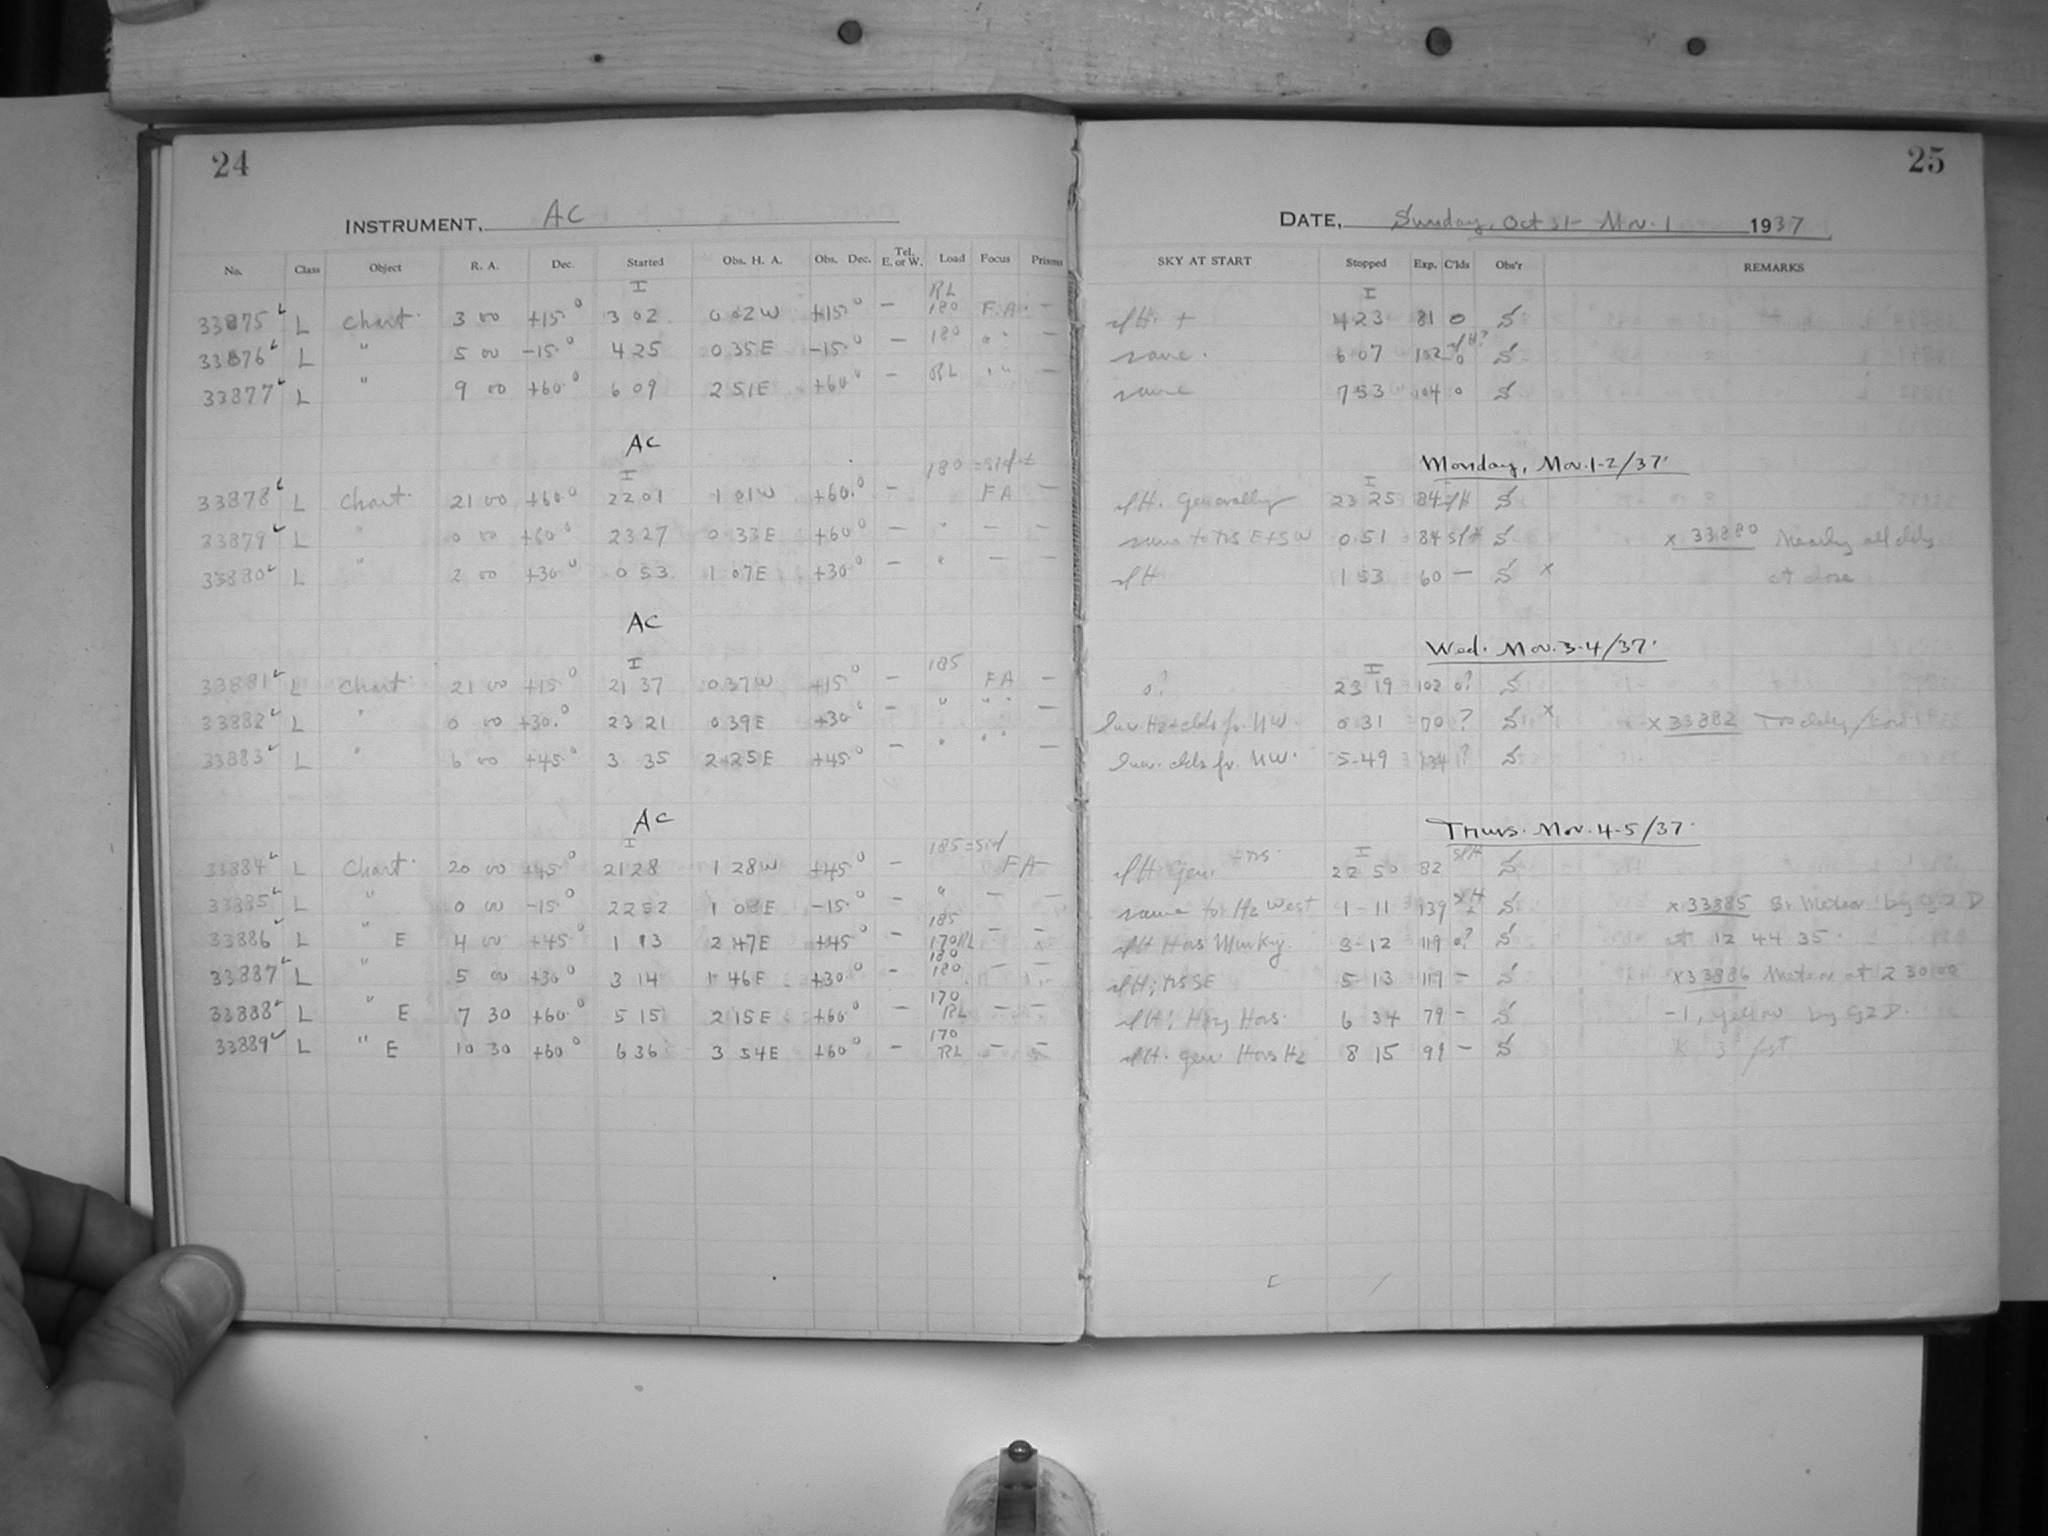 24
INSTRUMENT, AC
No. Class Object R. A. Dec. Started Obs. H. A. Obs. Dec. Tel. E. or W. Load Focus Prisms
I RL
33875 L Chart 3 00 +15.0 3 02 0 02 W +15.0 — 180 FA —
33876 L " 5 00 -15.0 4 25 0 35 E -15.0 — 180 " " —
33877 L " 9 00 +60.0 6 09 2 51 E +60.0 — RL " " —
AC
I 180 = sid
33878 L Chart 21 00 +60.0 22 01 1 01 W +60.0 — FA —
33879 L " 0 00 +60.0 23 27 0 33 E +60.0 — " — —
33880 L " 2 00 +30.0 0 53 1 07 E +30.0 — " — —
AC
I 185
33881 L Chart 21 00 +15.0 21 37 0 37 W +15.0 — FA —
33882 L " 0 00 +30.0 23 21 0 39 E +30.0 — " " " —
33883 L " 6 00 +45.0 3 35 2 25 E +45.0 — " " " —
AC
I 185 = sid
33884 L Chart 20 00 +45.0 21 28 1 28 W +45.0 — FA —
33885 L " 0 00 -15.0 22 52 1 08 E -15.0 — " — —
33886 L " E 4 00 +45.0 1 13 2 47 E +45.0 — 185 170 RL — —
33887 L " 5 00 +30.0 3 14 1 46 E +30.0 — 180 180 — —
33888 L " E 7 30 +60.0 5 15 2 15 E +60.0 — 170 RL — —
33889 L " E 10 30 +60.0 6 36 3 54 E +60.0 — 170 RL — —
25
DATE, Sunday, Oct 31 - Nov. 1 1937
SKY AT START Stopped Exp. C'lds Obs'r REMARKS
I
slH. + 4 23 81 0 S
same. 6 07 102 0 S
same 7 53 104 0 S
Monday, Nov. 1-2/37.
I
slH. Generally 23 25 84 slH S
same to NS E+SW 0 51 84 slH S x 33880 Nearly all cldy
slH 1 53 60 — S x at close
Wed. Nov. 3-4/37.
I
0? 23 19 102 0? S
clds fr. NW. 0 31 70 ? S x x 33882 Too cldy
clds fr. NW. 5-49 134 ? S
Thurs. Nov. 4-5/37.
I
slH Gen. 22 50 82 slH S
same to Hz West 1-11 139 S x 33885 Br Meteor by
slH Hors Murky. 3-12 119 0? S at 12 44 35.
slH; NSSE 5 13 119 — S x 33886 Meteor at 2 30 00
slH; Hazy Hors. 6 34 79 — S -1, yellow by
slH. gen Hors Hz 8 15 99 — S